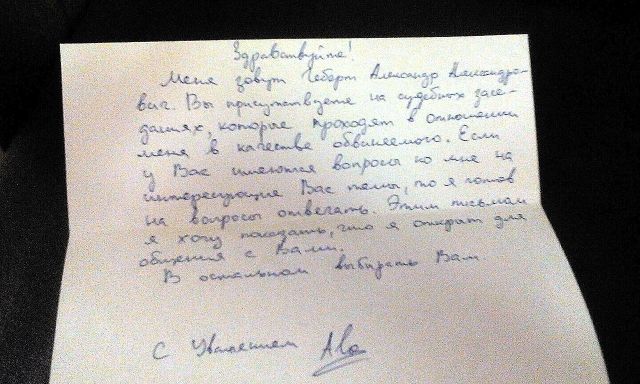 Здравствуйте!
Меня зовут Геберт Александр Александро-
вич. Вы присутствуете на судебных засе-
даниях, которые проходят в отношении
меня в качестве обвиняемого. Если
у Вас имеются вопросы ко мне на
интересующие Вас темы, то я готов
на вопросы отвечать. Этим письмам
я хочу показать, что я открыт для
общения с Вами.
В остальном выбирать Вам
С Уважением